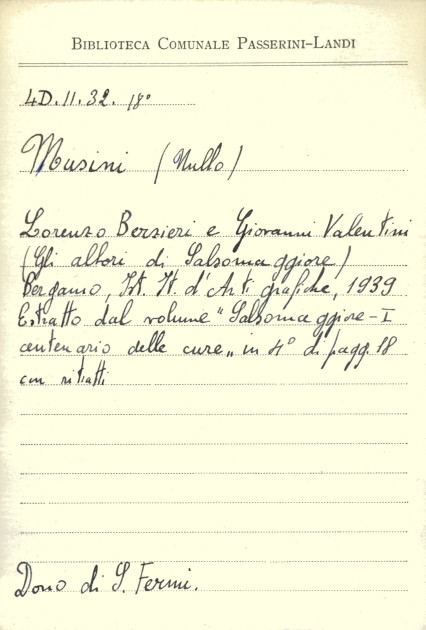 BIBLIOTECA COMUNALE PASSERINI-LANDI
4D.II.32. 18°
Musini (Nullo)
Lorenzo Berzieri e Giovanni Valentini
(Gli albori di Salsomaggiore)
Bergamo, Ist. It. d'Arti grafiche, 1939
Estratto dal volume "Salsomaggiore - I
centenario delle cure„ in 4° di pagg. 18
con ritratti
Dono di S. Fermi.